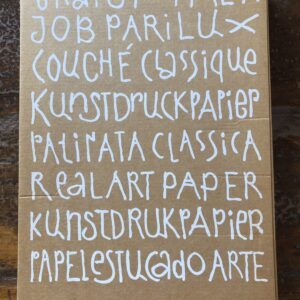 JOB PARILUX
COUCHÉ Classique
KUNSTDRUCKPAPIER
PATINATA CLASSICA
REALART PAPER
KUNSTDRUKPAPIER
PAPELESTUCADO ARTE